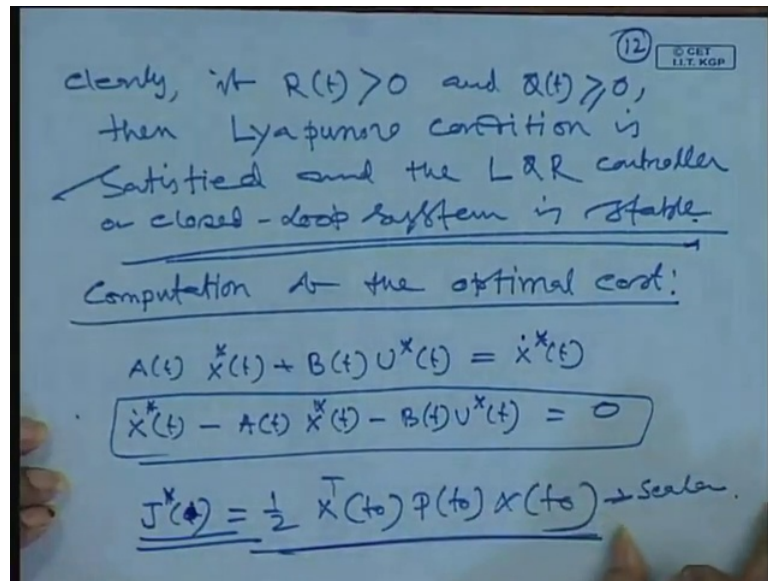 12
© CET
I.I.T. KGP
clearly, if R(t) > 0 and Q(t) ≥ 0,
then Lyapunov condition is
satisfied and the LQR controller
or closed-loop system is stable.
Computation of the optimal cost:
A(t) x*(t) + B(t) U*(t) = ẋ*(t)
ẋ*(t) - A(t) x*(t) - B(t) U*(t) = 0
J*(t) = 1/2 x^T(t0) P(t0) x(t0) → Scalar.